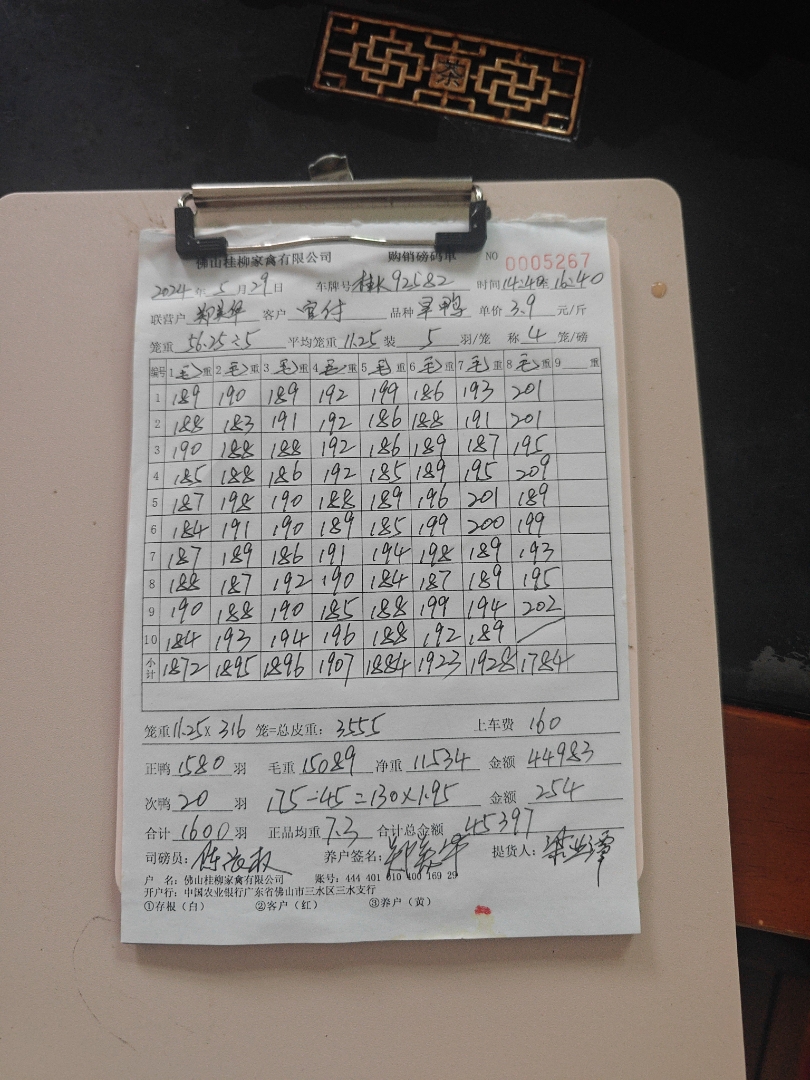 茶
佛山桂柳家禽有限公司 购销磅码单 NO 0005267
2024年5月29日 车牌号桂K92582 时间14:40至16:40
联营户 郑美华 客户 官付 品种 旱鸭 单价 3.9 元/斤
笼重 56.25÷5 平均笼重 11.25 装 5 羽/笼 称 4 笼/磅
编号 1毛重 2毛重 3毛重 4毛重 5毛重 6毛重 7毛重 8毛重 9 重
1 189 190 189 192 199 186 193 201
2 188 183 191 192 186 188 191 201
3 190 188 188 192 186 189 187 195
4 185 188 186 192 185 189 195 209
5 187 198 190 188 189 196 201 189
6 184 191 190 189 185 199 200 199
7 187 189 186 191 194 198 189 193
8 188 187 192 190 184 187 189 195
9 190 188 190 185 188 199 194 202
10 184 193 194 196 188 192 189
小计 1872 1895 1896 1907 1884 1923 1928 1784
笼重11.25× 316 笼=总皮重: 3555 上车费 160
正鸭 1580 羽 毛重 15089 净重 11534 金额 44983
次鸭 20 羽 175-45=130×1.95 金额 254
合计 1600 羽 正品均重 7.3 合计总金额 45397
司磅员: 养户签名: 郑美华 提货人:
户 名: 佛山桂柳家禽有限公司 账号: 444 401 010 400 169 29
开户行: 中国农业银行广东省佛山市三水区三水支行
①存根(白) ②客户(红) ③养户(黄)